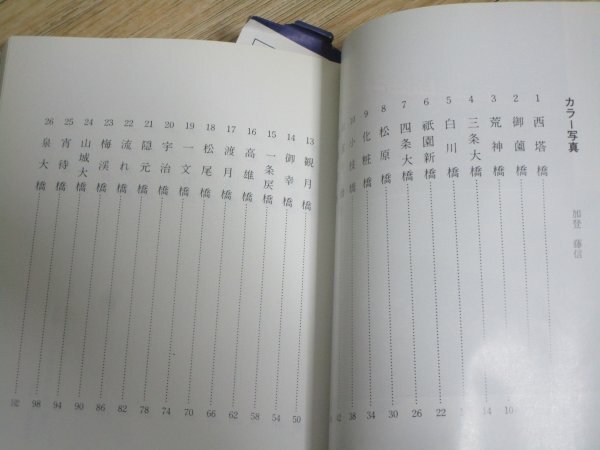 カラー写真
加登 藤信
1 西塔橋 10
2 御薗橋 14
3 荒神橋
4 三条大橋 22
5 白川橋 26
6 祇園新橋 30
7 四条大橋 34
8 松原橋 38
9 化粧橋 42
10 小枝橋
13 観月橋 50
14 御幸橋 54
15 一条戻橋 58
16 高雄橋 62
17 渡月橋 66
18 松尾橋 70
19 一文橋 74
20 宇治橋 78
21 隠元橋 82
22 流れ橋 86
23 梅渓橋 90
24 山城大橋 94
25 宵待橋 98
26 泉大橋 102